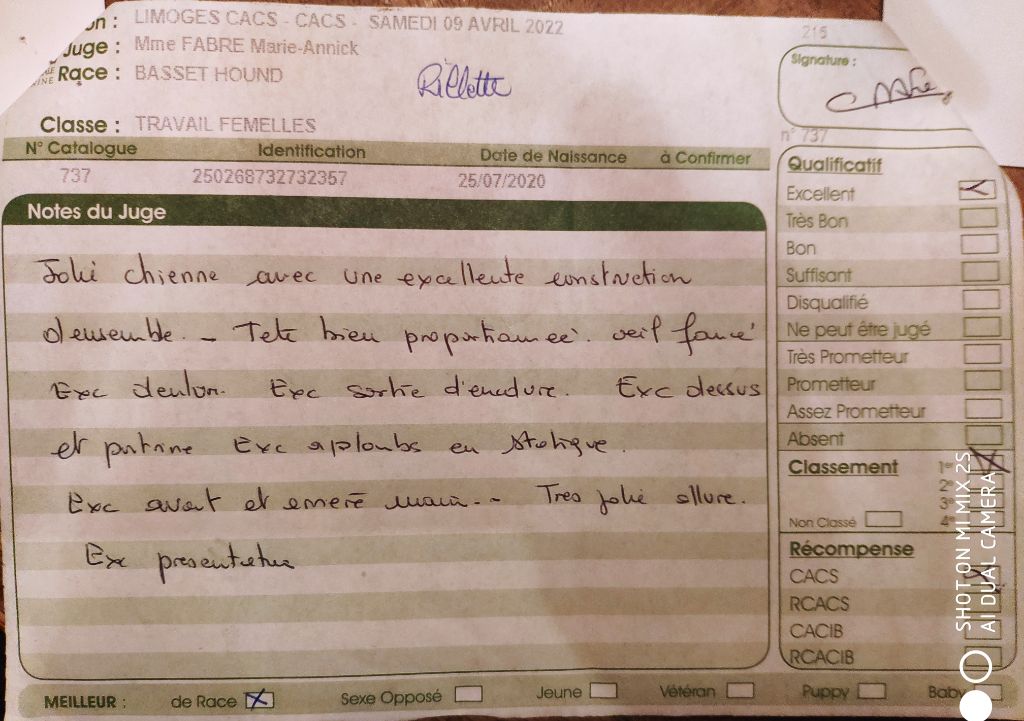 on : LIMOGES CACS - CACS - SAMEDI 09 AVRIL 2022
Juge : Mme FABRE Marie-Annick
Race : BASSET HOUND
Rillette
Classe : TRAVAIL FEMELLES
N° Catalogue Identification Date de Naissance à Confirmer
737 250268732732357 25/07/2020
Notes du Juge
Jolie chienne avec une excellente construction
d'ensemble. - Tete bien proportionnée. oeil foncé
Exc denture. Exc sortie d'encolure. Exc dessus
et poitrine Exc aplombs en statique.
Exc avant et arrière main. - Tres jolie allure.
Exc presentation
215
Signature :
n° 737
Qualificatif
Excellent
Très Bon
Bon
Suffisant
Disqualifié
Ne peut être jugé
Très Prometteur
Prometteur
Assez Prometteur
Absent
Classement 1er
2e
3e
Non Classé 4e
Récompense
CACS
RCACS
CACIB
RCACIB
MEILLEUR : de Race Sexe Opposé Jeune Vétéran Puppy Baby
SHOT ON MI MIX 2S
AI DUAL CAMERA